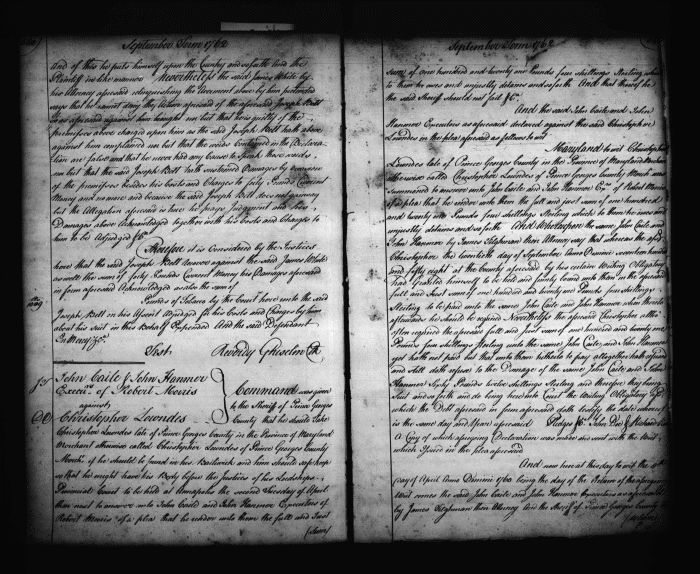 September Term 1762
And of this he puts himself upon the Country and so forth And the
Plaintiff in like manner Nevertheless the said James White by
his Attorney aforesaid relinquishing the Averment above by him pretended
says that he cannot deny the Action aforesaid of the aforesaid Joseph Bell
as aforesaid against him brought nor but that he is guilty of the
premisses above charged upon him as the said Joseph Bell hath above
against him complained nor but that the words contained in the Declara
tion are false and that he never had any Cause to speak these words
nor but that the said Joseph Bell hath sustained Damages by occasion
of the premisses besides his Costs and Charges to forty Pounds Current
Money and manner and because the said Joseph Bell does not gainsay
but the Allegation aforesaid is true he prays Judgment and his
Damages above Acknowledged together with his Costs and Charges to
him to be Adjudged &c
Therefore it is Considered by the Justices
here that the said Joseph Bell recover against the said James White
the sum of forty Pounds Current Money his Damages aforesaid
in form aforesaid Acknowledged as also the sum of
Pounds of Tobacco by the Court here unto the said
Joseph Bell on his Assent Adjudged for his Costs and Charges by him
about his suit in this Behalf Expended And the said Defendant
In Mercy &c
Test. Reverdy Ghiselin Clk
John Caile & John Hanmer
Execrs. of Robert Morris
against
Christopher Lowndes
Command was given
to the Sheriff of Prince Georges
County that he should take
Christopher Lowndes late of Prince Georges County in the Province of Maryland
Merchant otherwise called Christopher Lowndes of Prince Georges County
Mercht. if he should be found in his Bailiwick and him should safe keep
so that he might have his Body before the Justices of his Lordships
Provincial Court to be held at Annapolis the second Tuesday of April
then next to answer unto John Caile and John Hanmer Executors of
Robert Morris of a plea that he render unto them the full and Just
(sum)
September Term 1762
sum of one hundred and twenty one Pounds four shillings Sterling which
to them he owes and unjustly detains and so forth And that thereof he
the said Sheriff should not fail &c.
And the said John Caile and John
Hanmer Executors as aforesaid declared against the said Christopher
Lowndes in the plea aforesaid as follows to wit
Maryland to wit Christopher
Lowndes late of Prince Georges County in the Province of Maryland Merchant
otherwise called Christopher Lowndes of Prince Georges County Mercht. was
summoned to answer unto John Caile and John Hanmer Exrs. of Robert Morris
of a plea that he render unto them the full and just sum of one hundred
and twenty one Pounds four shillings Sterling which to them he owes and
unjustly detains and so forth And Whereupon the same John Caile and
John Hanmer by James Tilghman their Attorney say that whereas the afd.
Christopher the twentieth day of September Anno Domini seventeen hundred
and fifty eight at the County aforesaid by his certain Writing Obligatory
had Granted himself to be held and firmly bound unto them in the aforesaid
full and Just sum of one hundred and twenty one Pounds four shillings
Sterling to be paid unto the same John Caile and John Hanmer when thereto
afterwards he should be required Nevertheless the aforesaid Christopher altho
often required the aforesaid full and Just sum of one hundred and twenty one
Pounds four shillings Sterling unto the same John Caile and John Hanmer
yet hath not paid but that unto them hitherto to pay altogether hath refused
and still doth refuse to the Damage of the same John Caile and John
Hanmer Sixty Pounds twelve shillings Sterling and therefore they bring
Suit and so forth and do bring here into Court the Writing Obligatory afd.
which the Debt aforesaid in form aforesaid doth testify the date whereof
is the same day and Year aforesaid Pledges &c. John Doe & Richard Roe
A Copy of which aforegoing Declaration was made and sent with the Writ
which Issued in the plea aforesaid
And now here at this day to wit the
day of April Anno Domini 1760 being the day of the Return of the aforegoing
Writ comes the said John Caile and John Hanmer Executors as aforesaid
by James Tilghman their Attorney And the Sheriff of Prince Georges County to